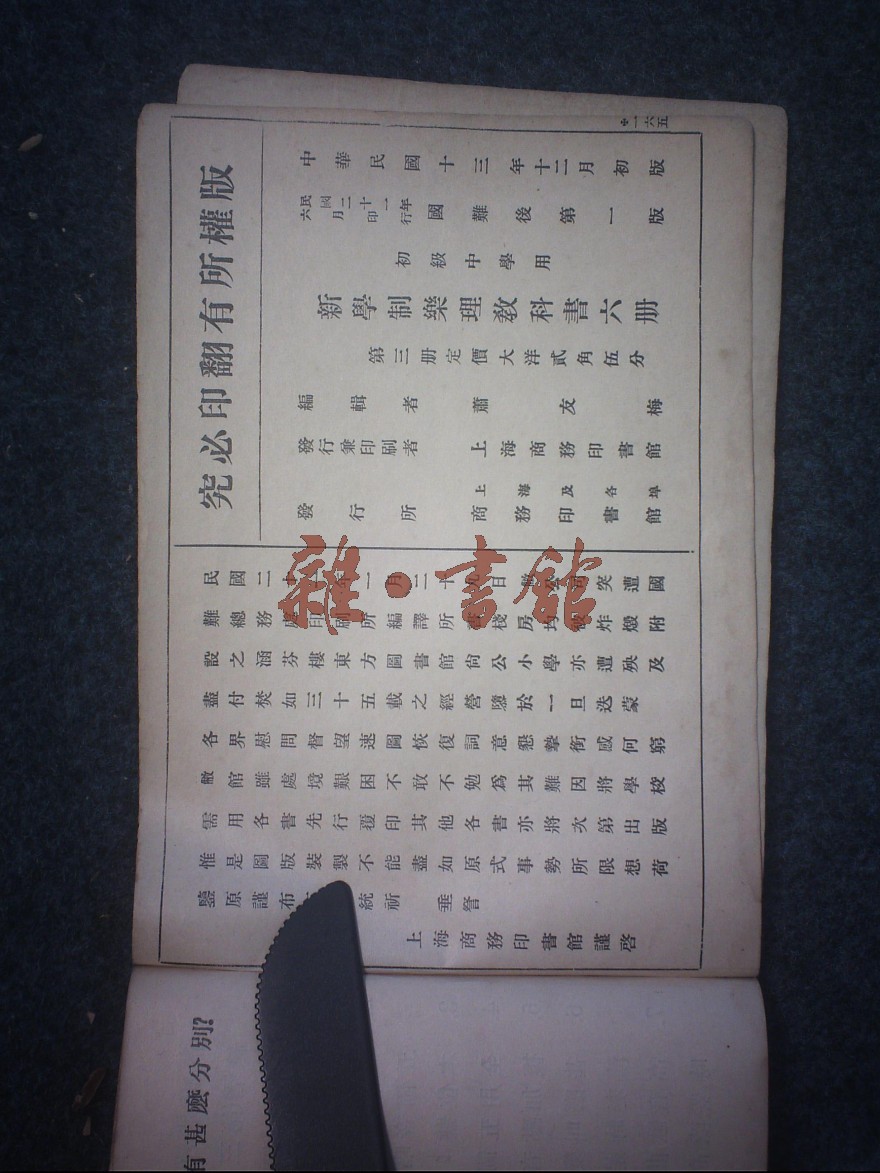 版權所有翻印必究
一六五
中華民國十三年十二月初版
民國二十一年
六月印行
國難後第一版
初級中學用
新學制樂理教科書六册
第三册定價大洋貳角伍分
編輯者 蕭友梅
發行兼印刷者 上海商務印書館
發行所 上海及各埠
商務印書館
民國二十一年一月二十日突遭國
難總務處印刷所編譯所棧房均被炸燬附
設之涵芬樓東方圖書館尚公小學亦遭殃及
盡付焚如三十五載之經營隳於一旦迭蒙
各界慰問督望速圖恢復詞意懇摯銜感何窮
敝館雖處境艱困不敢不勉為其難因將學校
需用各書先行覆印其他各書亦將次第出版
惟是圖版裝製不能盡如原式事勢所限想荷
鑒原謹布統祈 垂詧
上海商務印書館謹啓
有甚麼分別?